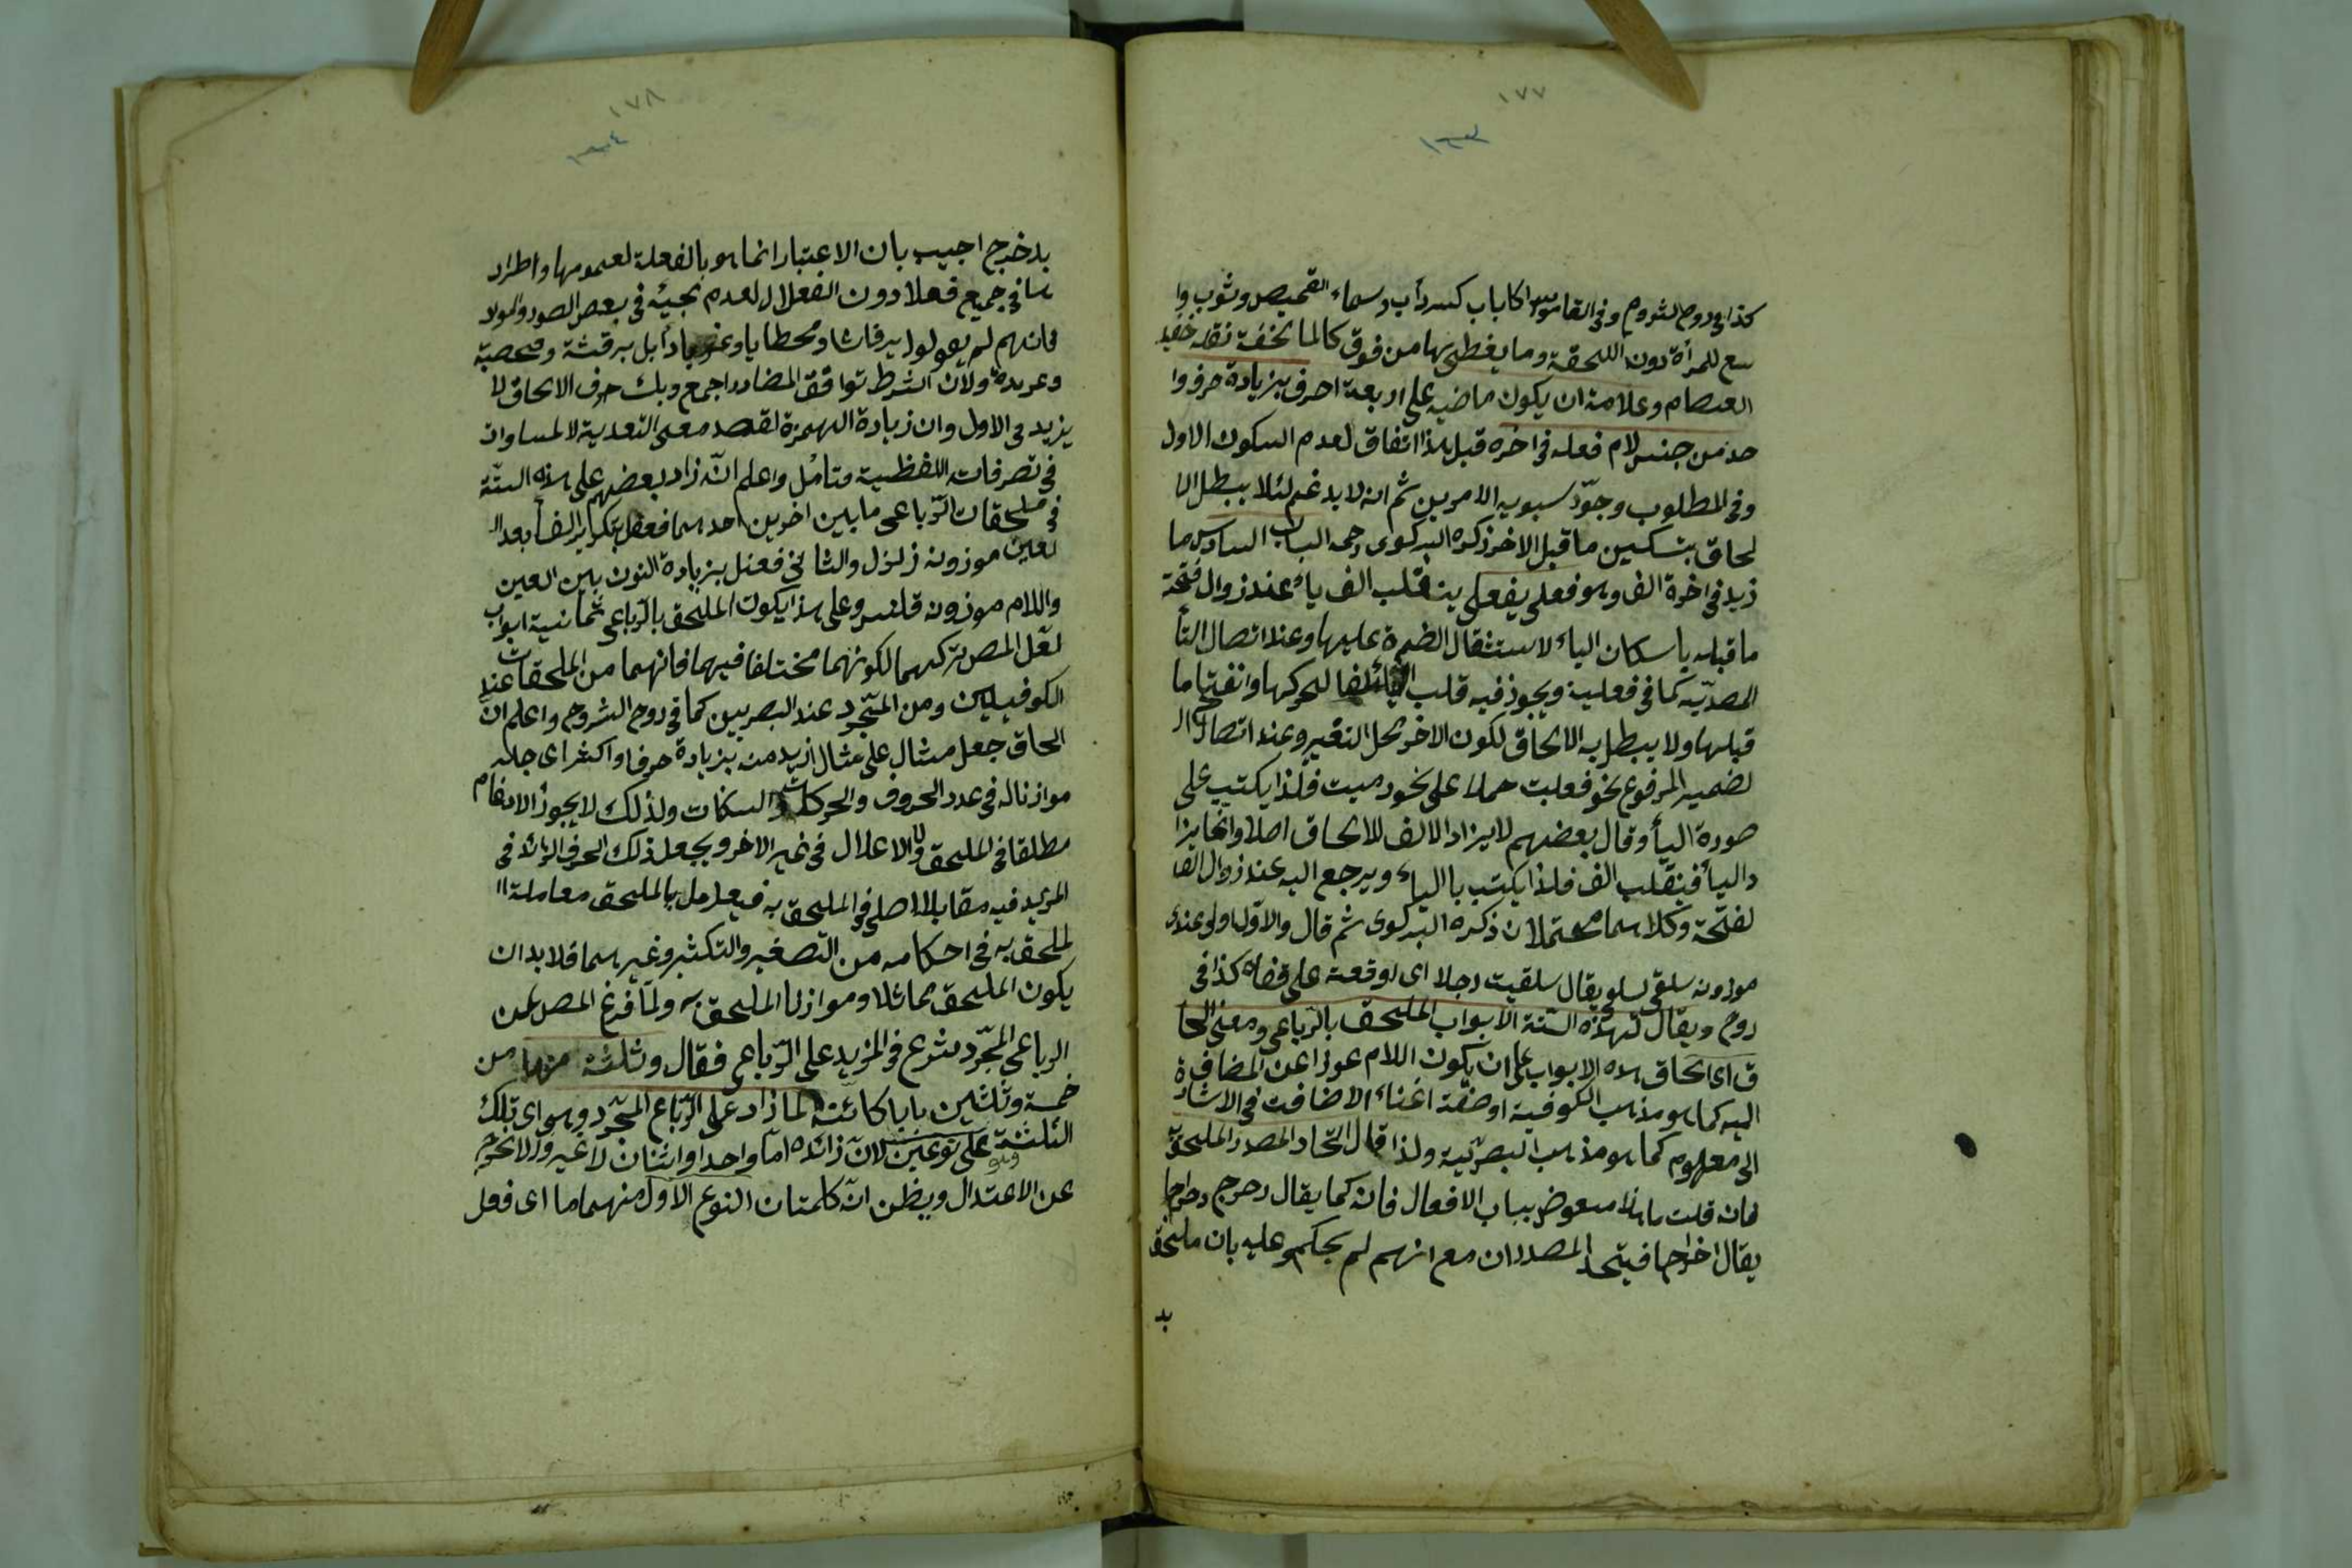 ١٧٧
١٦٣
كذا فى روح الشروح وفى القاموس كسرداب وسماء القميص وثوب وا
سع للمرأة دون اللحقة وما يغطى بها من فوق كالملحفة نقله حفيد
العصام وعلامته ان يكون ماضيه على اربعة احرف بزيادة حرف وا
حد من جنس لام فعله فى اخره قبل هذا اتفاق لعدم السكون الاول
وفى المطلوب وجوّد سبويه الامرين ثم انه لا يدغم لئلا يبطل الا
لحاق بتسكين ما قبل الاخر ذكره البركوى رحمه الباب السادس ما
زيد فى اخرة الف وهو فعلى يفعلى ينقلب الف ياء عند زوال فتحة
ما قبله باسكان الياء لاستثقال الضمة عليها وعند اتصال التأ
المصدّيه كما فى فعلية ويجوز فيه قلب الفا لتحركها وانفتاح ما
قبلها ولا يبطل به الالحاق لكون الاخر محل التغير وعند اتصال ال
لضمير المرفوع نحو فعليت حملا على نحو رميت فلذا يكتب على
صورة اليأ وقال بعضهم لا يزاد الالف للالحاق اصلا وانما يزا
د اليأ فينقلب الف فلذا يكتب بالياء ويرجع اليه عند زوال الفا
لفتحة وكلاهما محتملان ذكره البركوى ثم قال والاول اولى عندى
موزونه سلقى يسلقى يقال سلقيت رجلا اى اوقعته على قفاه كذا فى
روح ويقال لهذه الستة الابواب الملحق بالرباعى ومعنى الحا
ق اى الحاق هذه الابواب على ان يكون اللام عوزا عن المضاف ة
اليه كما هو مذهب الكوفية او صفة اغناء الاضافت فى الاشار
الى معهوم كما هو مذهب البصريية ولذا قال اتحاد المصدر الملحق
فان قلت ما هذا معوض بباب الافعال فانه كما يقال دحرج دحراجا
يقال اخراجا فيتحد المصدران مع انهم لم يحكمو عليه بان ملحق
بد
١٧٨
١٦٤
بدخرج اجيب بان الاعتبار انما هو بالفعللة لعمومها واطراد
ها فى جميع فعلا دون الفعلال لعدم مجيئه فى بعض الصور والمولا
فانهم لم يقولوا برقاشا ومحطايا بل برقشة وقحصبة
وعربدة ولان الشرط توافق المضادر اجمع وبك حرف الالحاق لا
يزيد فى الاول وان زيادة الهمزة لقصد معنى التعدية لا لمساوات
فى تصرفات اللفظية فتأمل واعلم انّه زاد بعضهم على هذه الستة
فى ملحقات الرّباعى ما بين اخرين احدهما فعفل بتكرار الفأ بعد ال
لعين موزونه زلزل والثانى فعنل بزيادة النون بين العين
واللام موزونه قلنس وعلى هذا يكون الملحق بالرّباعى ثمانية ابواب
لعّل المص تركهما لكونهما مختلفا فيهما فانهما من الملحقات عند
الكوفييين ومن المتجرد عند البصريين كما فى روح الشروح واعلم انّ
الحاق جعل مثال على مثال ازيد منه بزيادة حرفا واكثر اى جعله
موازنا له فى عدد الحروف والحركات والسكنات ولذلك لا يجوز الادغام
مطلقا فى الملحق ولا الاعلال فى غير الاخر ويجعل ذلك الحرف الزائد فى
المزيد فيه مقابلا لاصلى فى الملحق به فيعامل بالملحق معاملة ا
لملحق به فى احكامه من التصغير والتكثير وغيرهما فلا بد ان
يكون الملحق مماثلا وموازنا الملحق به ولمّا فرغ المص عن
الرباعى المجّرد شرع فى المزيد على الرّباعى فقال وثلثة منها من
خمسة وثلثين بابا كائنة لما زاد على الرّباع المجّرد وهى اى تلك
الثلثة على نوعين لانّ زائده امّا واحد او اثنان لا غير ولا لا تخرج
عن الاعتدال ويظن انّ كلمتان النوع الاول منهما ما اى فعل